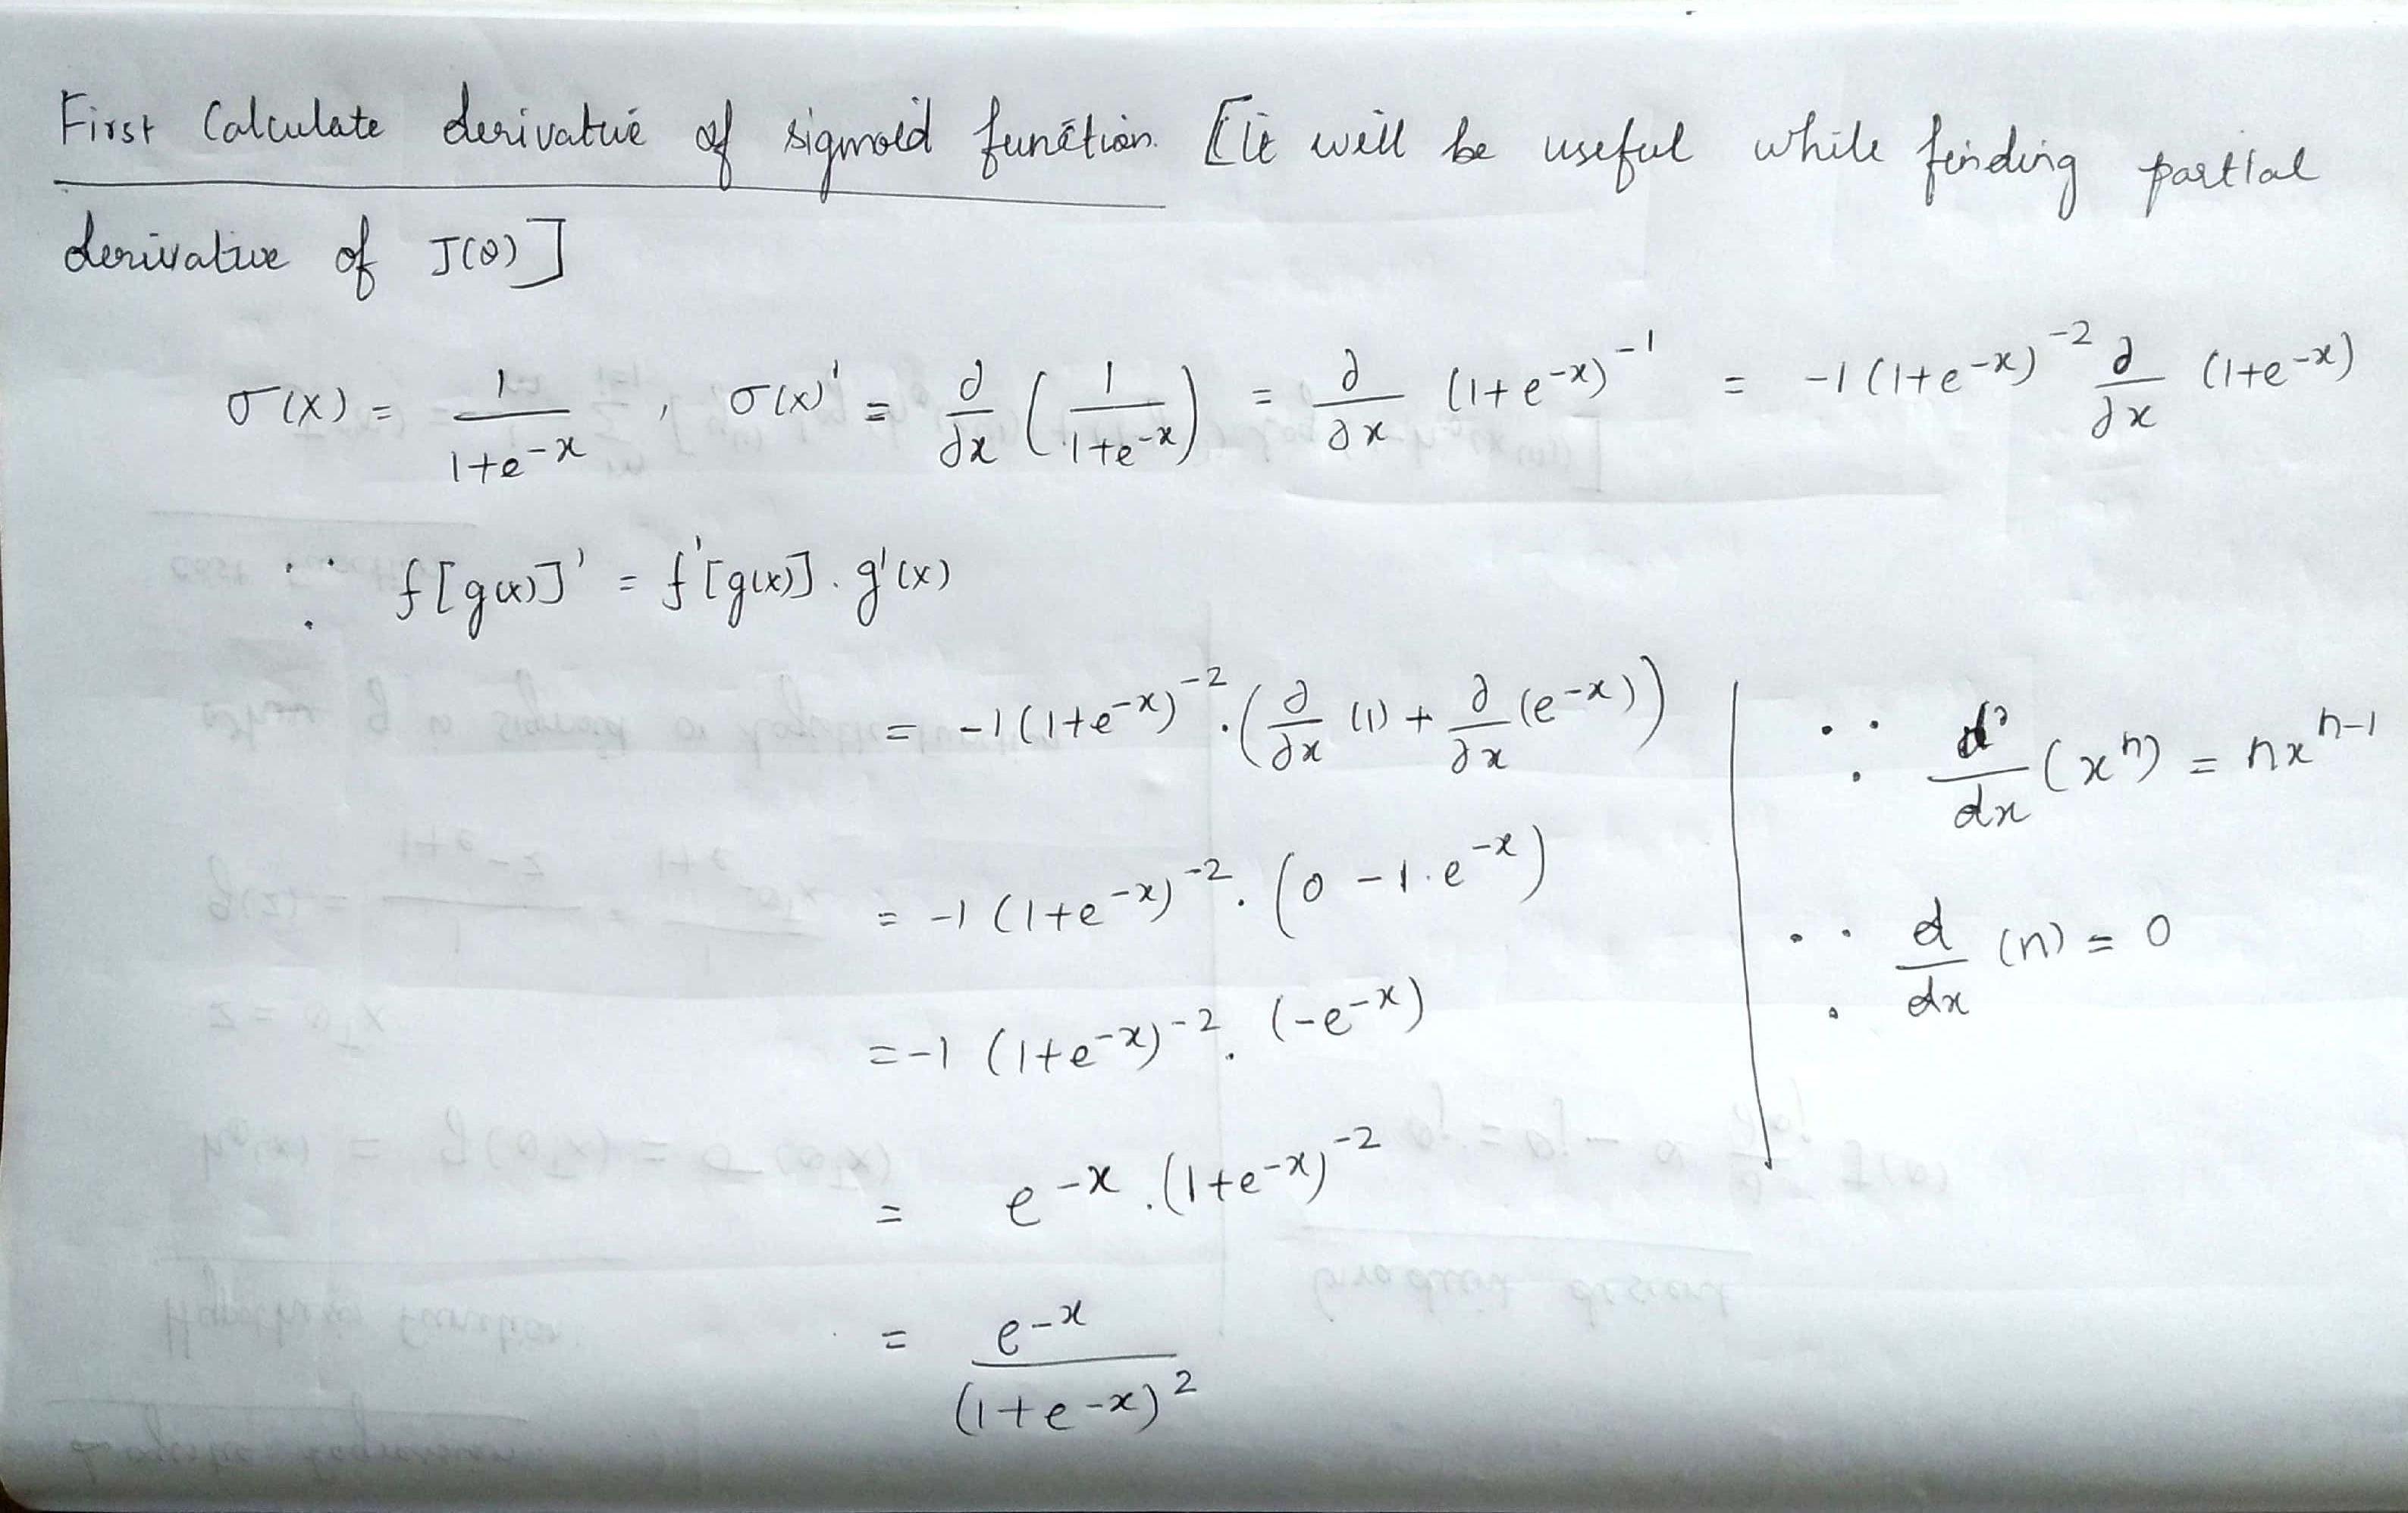 First Calculate derivative of sigmoid function [it will be useful while finding partial
derivative of J(θ)]
σ(x) = 1/(1+e^-x) , σ(x)' = ∂/∂x (1/(1+e^-x)) = ∂/∂x (1+e^-x)^-1 = -1(1+e^-x)^-2 ∂/∂x (1+e^-x)
∵ f[g(x)]' = f'[g(x)] . g'(x)
= -1(1+e^-x)^-2 . (∂/∂x (1) + ∂/∂x (e^-x))
∵ d/dx (x^n) = nx^n-1
= -1(1+e^-x)^-2 . (0 - 1 . e^-x)
∵ d/dx (n) = 0
= -1 (1+e^-x)^-2 . (-e^-x)
= e^-x . (1+e^-x)^-2
= e^-x/(1+e^-x)^2